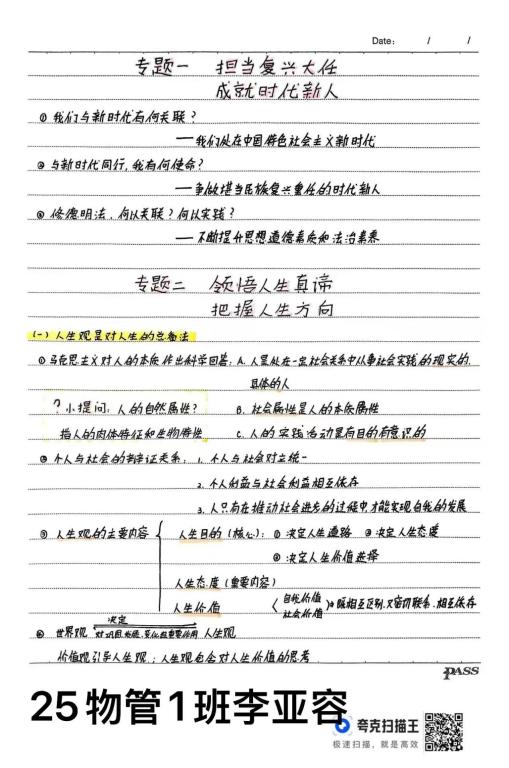 Date: / /
专题一 担当复兴大任
成就时代新人
① 我们与新时代有何关联?
——我们处在中国特色社会主义新时代
② 与新时代同行,我有何使命?
——争做堪当民族复兴重任的时代新人
③ 修德明法、何以关联?何以实践?
——不断提升思想道德素质和法治素养
专题二 领悟人生真谛
把握人生方向
(一) 人生观是对人生的总看法
① 马克思主义对人的本质作出科学回答: A. 人是处在一定社会关系中从事社会实践的现实的、
具体的人
? 小提问: 人的自然属性? B. 社会属性是人的本质属性
指人的肉体特征和生物特性 C. 人的实践活动是有目的有意识的
② 个人与社会的辩证关系: 1. 个人与社会对立统一
2. 个人利益与社会利益相互依存
3. 人只有在推动社会进步的过程中,才能实现自我的发展
③ 人生观的主要内容 { 人生目的(核心): ① 决定人生道路 ② 决定人生态度
③ 决定人生价值选择
人生态度(重要内容)
人生价值 〈 自我价值 社会价值 〉→ 既相互区别,又密切联系、相互依存
决定
④ 世界观 对巩固、发展、变化起重要作用 人生观
价值观引导人生观;人生观包含对人生价值的思考
PASS
25物管1班李亚容
夸克扫描王
极速扫描,就是高效